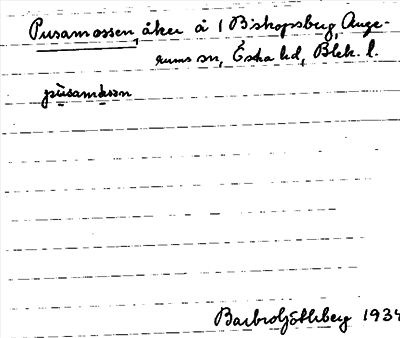 Pusamossen, åker å 1 Biskopsberg, Auge-
rums sn, Östra hd, Blek. l.
Barbro Götlberg 1934